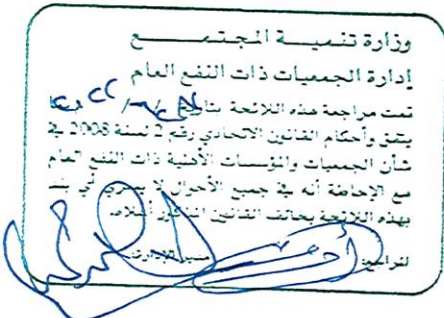 وزارة تنميـــة المجتمـــــع
إدارة الجمعيات ذات النفع العام
تمت مراجعة هذه اللائحة بتاريخ
يتفق وأحكام القانون الاتحادي رقم 2 لسنة 2008 في
شأن الجمعيات والمؤسسات الأهلية ذات النفع العام
مع الإحاطة أنه في جميع الأحوال لا يسري أي بند
بهذه اللائحة يخالف القانون المذكور أعلاه
مدير الإدارة